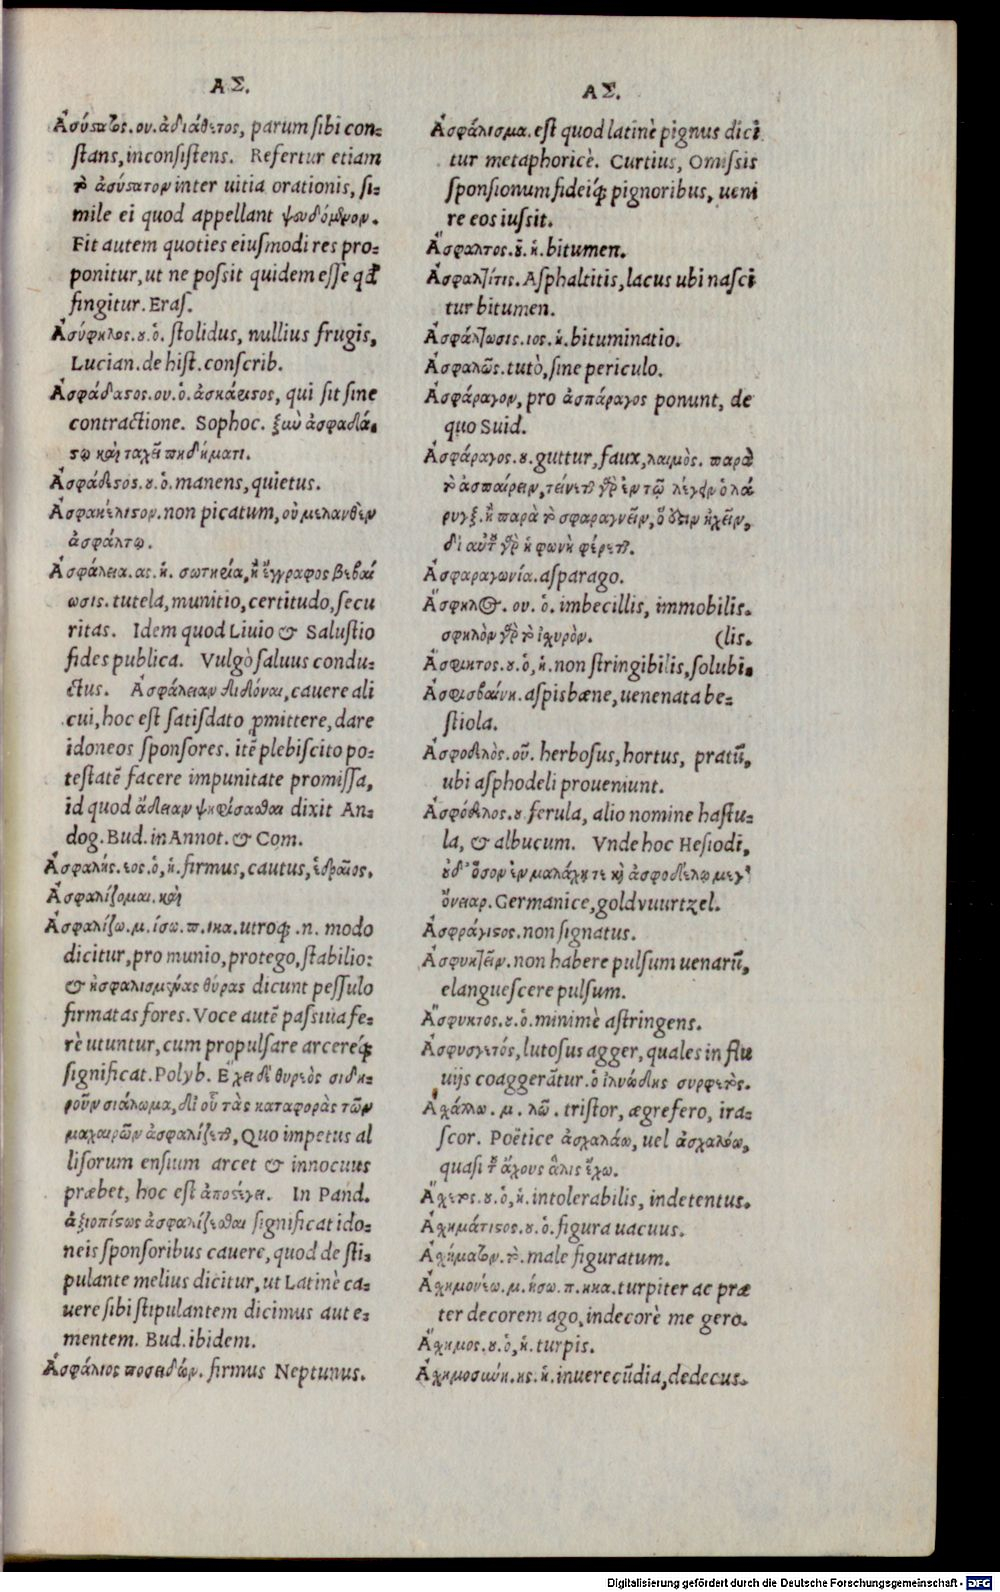 ΑΣ.
Ἀσύστατος. ου. ἀδιάθετος, parum sibi con-
stans, inconsistens. Refertur etiam
τὸ ἀσύστατον inter uitia orationis, si-
mile ei quod appellant ψευδόμενον.
Fit autem quoties eiusmodi res pro-
ponitur, ut ne possit quidem esse qđ
fingitur. Eras.
Ἀσύφηλος. ου. ὁ. stolidus, nullius frugis,
Lucian. de hist. conscrib.
Ἀσφάδαστος. ου. ὁ. ἀσκάριστος, qui sit sine
contractione. Sophoc. ξὺν ἀσφαδά-
στῳ καὶ ταχεῖ πηδήματι.
Ἀσφάδιστος. ου. ὁ. manens, quietus.
Ἀσφακέλιστον. non picatum, οὐ μελανθὲν
ἀσφάλτῳ.
Ἀσφάλεια. ας. ἡ. σωτηρία, ἢ ἔγγραφος βεβαί
ωσις. tutela, munitio, certitudo, secu
ritas. Idem quod Liuio & Salustio
fides publica. Vulgò saluus condu-
ctus. Ἀσφάλειαν διδόναι, cauere ali
cui, hoc est satisdato ꝓmittere, dare
idoneos sponsores. itē plebiscito po-
testatē facere impunitate promissa,
id quod ἄδειαν ψηφίσασθαι dixit An-
dog. Bud. in Annot. & Com.
Ἀσφαλής. εος. ὁ, ἡ. firmus, cautus, ἑδραῖος.
Ἀσφαλίζομαι. καὶ
Ἀσφαλίζω. μ. ίσω. π. ικα. utroq; .n. modo
dicitur, pro munio, protego, stabilio:
& ἠσφαλισμένας θύρας dicunt pessulo
firmatas fores. Voce autē passiua fe-
rè utuntur, cum propulsare arcereq́;
significat. Polyb. Ἔχει δὲ θυρεὸς σιδη-
ροῦν σιάλωμα, δι' οὗ τὰς καταφορὰς τῶν
μαχαιρῶν ἀσφαλίζεται, Quo impetus al
lisorum ensium arcet & innocuus
præbet, hoc est ἀποστέγει. In Pand.
ἀξιοπίστως ἀσφαλίζεσθαι significat ido-
neis sponsoribus cauere, quod de sti-
pulante melius dicitur, ut Latinè ca-
uere sibi stipulantem dicimus aut e-
mentem. Bud. ibidem.
Ἀσφάλιος ποσειδῶν. firmus Neptunus.
ΑΣ.
Ἀσφάλισμα. est quod latinè pignus dici
tur metaphoricè. Curtius, Omissis
sponsionum fideiq́; pignoribus, ueni
re eos iussit.
Ἄσφαλτος. ου. ἡ. bitumen.
Ἀσφαλτίτις. Asphaltitis, lacus ubi nasci
tur bitumen.
Ἀσφάλτωσις. ιος. ἡ. bituminatio.
Ἀσφαλῶς. tutò, sine periculo.
Ἀσφάραγον, pro ἀσπάραγος ponunt, de
quo Suid.
Ἀσφάραγος. ου. guttur, faux, λαιμὸς. παρὰ
τὸ ἀσπαίρειν, τείνεται γὰρ ἐν τῷ λέγειν ὁ λά
ρυγξ. ἢ παρὰ τὸ σφαραγνεῖν, ὅ ἐστιν ἠχεῖν,
δι αὐτοῦ γὰρ ἡ φωνὴ φέρεται.
Ἀσφαραγωνία. asparago.
Ἄσφηλος. ου. ὁ. imbecillis, immobilis.
σφηλὸν γὰρ τὸ ἰχυρὸν. (lis.
Ἄσφιγκτος. ου. ὁ, ἡ. non stringibilis, solubi-
Ἀσφισβαίνη. aspisbæne, uenenata be-
stiola.
Ἀσφοδελὸς. οῦ. herbosus, hortus, pratū,
ubi asphodeli proueniunt.
Ἀσφόδελος. ου ferula, alio nomine hastu-
la, & albucum. Vnde hoc Hesiodi,
οὐδ' ὅσον ἐν μαλάχῃ τε καὶ ἀσφοδέλῳ μέγ'
ὄνειαρ. Germanice, goldvuurtzel.
Ἀσφράγιστος. non signatus.
Ἀσφυκτεῖν. non habere pulsum uenarū,
elanguescere pulsum.
Ἄσφυκτος. ου. ὁ. minimè astringens.
Ἀσφυσγετός, lutosus agger, quales in flu
uijs coaggerātur. ὁ ἰλυώδης συρφετὸς.
Ἀχάλλω. μ. λῶ. tristor, ægrefero, ira-
scor. Poëtice ἀσχαλάω, uel ἀσχαλόω,
quasi τοῦ ἄχους ἅλις ἔχω.
Ἄχετος. ου. ὁ, ἡ. intolerabilis, indetentus.
Ἀχημάτιστος. ου. ὁ. figura uacuus.
Ἀχήματον. τὸ. male figuratum.
Ἀχημονέω. μ. ήσω. π. ηκα. turpiter ac præ
ter decorem ago, indecorè me gero.
Ἄχημος. ου. ὁ, ἡ. turpis.
Ἀχημοσύνη. ης. ἡ. inuerecūdia, dedecus.
Digitalisierung gefördert durch die Deutsche Forschungsgemeinschaft - DFG